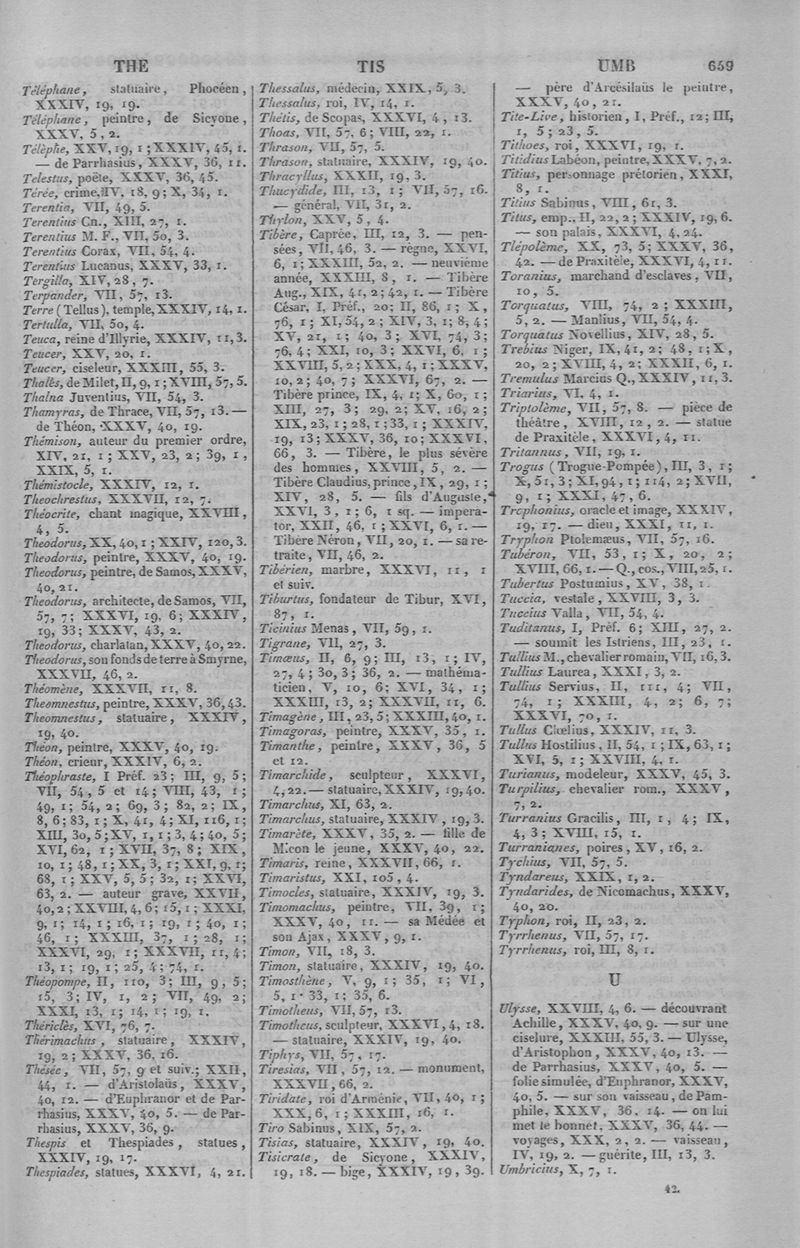 THE
TIS
UMB
659
Téléphane, statuaire, Phocéen,
XXXIV, 19, 19.
Téléphane, peintre, de Sicyone,
XXXV, 5, 2.
Télèphe, XXV, 19, 1; XXXIV, 45, 1.
— de Parrhasius, XXXV, 36, 11.
Telestus, poëte, XXXV, 36, 45.
Térée, crime, IV, 18, 9; X, 34, 1.
Terentia, VII, 49, 5.
Terentius Cn., XIII, 27, 1.
Terentius M. F., VII, 50, 3.
Terentius Corax, VII, 54, 4.
Terentius Lucanus, XXXV, 33, 1.
Tergilla, XIV, 28, 7.
Terpander, VII, 57, 13.
Terre (Tellus), temple, XXXIV, 14, 1.
Tertulla, VII, 50, 4.
Teuca, reine d'Illyrie, XXXIV, 11, 3.
Teucer, XXV, 20, 1.
Teucer, ciseleur, XXXIII, 55, 3.
Thalès, de Milet, II, 9, 1; XVIII, 57, 5.
Thalna Juventius, VII, 54, 3.
Thamyras, de Thrace, VII, 57, 13. —
de Théon, XXXV, 40, 19.
Thémison, auteur du premier ordre,
XIV, 21, 1; XXV, 23, 2; 39, 1,
XXIX, 5, 1.
Thémistocle, XXXIV, 12, 1.
Theochrestus, XXXVII, 12, 7.
Théocrite, chant magique, XXVIII,
4, 5.
Theodorus, XX, 40, 1; XXIV, 120, 3.
Theodorus, peintre, XXXV, 40, 19.
Theodorus, peintre, de Samos, XXXV,
40, 21.
Theodorus, architecte, de Samos, VII,
57, 7; XXXVI, 19, 6; XXXIV,
19, 33; XXXV, 43, 2.
Theodorus, charlatan, XXXV, 40, 22.
Theodorus, son fonds de terre à Smyrne,
XXXVII, 46, 2.
Théomène, XXXVII, 11, 8.
Theomnestus, peintre, XXXV, 36, 43.
Theomnestus, statuaire, XXXIV,
19, 40.
Théon, peintre, XXXV, 40, 19.
Théon, crieur, XXXIV, 6, 2.
Théophraste, I Préf. 23; III, 9, 5;
VII, 54, 5 et 14; VIII, 43, 1;
49, 1; 54, 2; 69, 3; 82, 2; IX,
8, 6; 83, 1; X, 41, 4; XI, 116, 1;
XIII, 30, 5; XV, 1, 1; 3, 4; 40, 5;
XVI, 62, 1; XVII, 37, 8; XIX,
10, 1; 48, 1; XX, 3, 1; XXI, 9, 1;
68, 1; XXV, 5, 5; 32, 1; XXVI,
63, 2. — auteur grave, XXVII,
40, 2; XXVIII, 4, 6; 15, 1; XXXI,
9, 1; 14, 1; 16, 1; 19, 1; 40, 1;
46, 1; XXXIII, 37, 1; 28, 1;
XXXVI, 29, 1; XXXVII, 11, 4;
13, 1; 19, 1; 25, 4; 74, 1.
Théopompe, II, 110, 3; III, 9, 5;
15, 3; IV, 1, 2; VII, 49, 2;
XXXI, 13, 1; 14, 1; 19, 1.
Thériclès, XVI, 76, 7.
Thérimachus, statuaire, XXXIV,
19, 2; XXXV, 36, 16.
Thésée, VII, 57, 9 et suiv.; XXII,
44, 1. — d'Aristolaüs, XXXV,
40, 12. — d'Euphranor et de Par-
rhasius, XXXV, 40, 5. — de Par-
rhasius, XXXV, 36, 9.
Thespis et Thespiades, statues,
XXXIV, 19, 17.
Thespiades, statues, XXXVI, 4, 21.
Thessalus, médecin, XXIX, 5, 3.
Thessalus, roi, IV, 14, 1.
Thétis, de Scopas, XXXVI, 4, 13.
Thoas, VII, 57, 6; VIII, 22, 1.
Thrason, VII, 57, 5.
Thrason, statuaire, XXXIV, 19, 40.
Thracyllus, XXXII, 19, 3.
Thucydide, III, 13, 1; VII, 57, 16.
— général, VII, 31, 2.
Thylon, XXV, 5, 4.
Tibère, Caprée, III, 12, 3. — pen-
sées, VII, 46, 3. — règne, XXVI,
6, 1; XXXIII, 52, 2. — neuvième
année, XXXIII, 8, 1. — Tibère
Aug., XIX, 41, 2; 42, 1. — Tibère
César, I, Préf., 20; II, 86, 1; X,
76, 1; XI, 54, 2; XIV, 3, 1; 8, 4;
XV, 21, 1; 40, 3; XVI, 74, 3;
76, 4; XXI, 10, 3; XXVI, 6, 1;
XXVIII, 5, 2; XXX, 4, 1; XXXV,
10, 2; 40, 7; XXXVI, 67, 2. —
Tibère prince, IX, 4, 1; X, 60, 1;
XIII, 27, 3; 29, 2; XV, 16, 2;
XIX, 23, 1; 28, 1; 33, 1; XXXIV,
19, 13; XXXV, 36, 10; XXXVI,
66, 3. — Tibère, le plus sévère
des hommes, XXVIII, 5, 2. —
Tibère Claudius, prince, IX, 29, 1;
XIV, 28, 5. — fils d'Auguste,
XXVI, 3, 1; 6, 1 sq. — impera-
tor, XXII, 46, 1; XXVI, 6, 1. —
Tibère Néron, VII, 20, 1. — sa re-
traite, VII, 46, 2.
Tibérien, marbre, XXXVI, 11, 1
et suiv.
Tiburtus, fondateur de Tibur, XVI,
87, 1.
Ticinius Menas, VII, 59, 1.
Tigrane, VII, 27, 3.
Timæus, II, 6, 9; III, 13, 1; IV,
27, 4; 30, 3; 36, 2. — mathéma-
ticien, V, 10, 6; XVI, 34, 1;
XXXIII, 13, 2; XXXVII, 11, 6.
Timagène, III, 23, 5; XXXIII, 40, 1.
Timagoras, peintre, XXXV, 35, 1.
Timanthe, peintre, XXXV, 36, 5
et 12.
Timarchide, sculpteur, XXXVI,
4, 22. — statuaire, XXXIV, 19, 40.
Timarchus, XI, 63, 2.
Timarchus, statuaire, XXXIV, 19, 3.
Timarète, XXXV, 35, 2. — fille de
Micon le jeune, XXXV, 40, 22.
Timaris, reine, XXXVII, 66, 1.
Timaristus, XXI, 105, 4.
Timocles, statuaire, XXXIV, 19, 3.
Timomachus, peintre, VII, 39, 1;
XXXV, 40, 11. — sa Médée et
son Ajax, XXXV, 9, 1.
Timon, VII, 18, 3.
Timon, statuaire, XXXIV, 19, 40.
Timosthène, V, 9, 1; 35, 1; VI,
5, 1; 33, 1; 35, 6.
Timotheus, VII, 57, 13.
Timotheus, sculpteur, XXXVI, 4, 18.
— statuaire, XXXIV, 19, 40.
Tiphys, VII, 57, 17.
Tiresias, VII, 57, 12. — monument,
XXXVII, 66, 2.
Tiridate, roi d'Arménie, VII, 40, 1;
XXX, 6, 1; XXXIII, 16, 1.
Tiro Sabinus, XIX, 57, 2.
Tisias, statuaire, XXXIV, 19, 40.
Tisicrate, de Sicyone, XXXIV,
19, 18. — bige, XXXIV, 19, 39.
— père d'Arcésilaüs le peintre,
XXXV, 40, 21.
Tite-Live, historien, I, Préf., 12; III,
1, 5; 23, 5.
Tithoes, roi, XXXVI, 19, 1.
Titidius Labéon, peintre, XXXV, 7, 2.
Titius, personnage prétorien, XXXI,
8, 1.
Titius Sabinus, VIII, 61, 3.
Titus, emp., II, 22, 2; XXXIV, 19, 6.
— son palais, XXXVI, 4, 24.
Tlépolème, XX, 73, 5; XXXV, 36,
42. — de Praxitèle, XXXVI, 4, 11.
Toranius, marchand d'esclaves, VII,
10, 5.
Torquatus, VIII, 74, 2; XXXIII,
5, 2. — Manlius, VII, 54, 4.
Torquatus Novellius, XIV, 28, 5.
Trebius Niger, IX, 41, 2; 48, 1; X,
20, 2; XVIII, 4, 2; XXXII, 6, 1.
Tremulus Marcius Q., XXXIV, 11, 3.
Triarius, VI, 4, 1.
Triptolème, VII, 57, 8. — pièce de
théâtre, XVIII, 12, 2. — statue
de Praxitèle, XXXVI, 4, 11.
Tritannus, VII, 19, 1.
Trogus (Trogue-Pompée), III, 3, 1;
X, 51, 3; XI, 94, 1; 114, 2; XVII,
9, 1; XXXI, 47, 6.
Trophonius, oracle et image, XXXIV,
19, 17. — dieu, XXXI, 11, 1.
Tryphon Ptolemæus, VII, 57, 16.
Tubéron, VII, 53, 1; X, 20, 2;
XVIII, 66, 1. — Q., cos., VIII, 25, 1.
Tubertus Postumius, XV, 38, 1.
Tuccia, vestale, XXVIII, 3, 3.
Tuccius Valla, VII, 54, 4.
Tuditanus, I, Préf. 6; XIII, 27, 2.
— soumit les Istriens, III, 23, 1.
Tullius M., chevalier romain, VII, 16, 3.
Tullius Laurea, XXXI, 3, 2.
Tullius Servius, II, 111, 4; VII,
74, 1; XXXIII, 4, 2; 6, 7;
XXXVI, 70, 1.
Tullus Clœlius, XXXIV, 11, 3.
Tullus Hostilius, II, 54, 1; IX, 63, 1;
XVI, 5, 1; XXVIII, 4, 1.
Turianus, modeleur, XXXV, 45, 3.
Turpilius, chevalier rom., XXXV,
7, 2.
Turranius Gracilis, III, 1, 4; IX,
4, 3; XVIII, 15, 1.
Turranianes, poires, XV, 16, 2.
Tychius, VII, 57, 5.
Tyndareus, XXIX, 1, 2.
Tyndarides, de Nicomachus, XXXV,
40, 20.
Typhon, roi, II, 23, 2.
Tyrrhenus, VII, 57, 17.
Tyrrhenus, roi, III, 8, 1.
U
Ulysse, XXVIII, 4, 6. — découvrant
Achille, XXXV, 40, 9. — sur une
ciselure, XXXIII, 55, 3. — Ulysse,
d'Aristophon, XXXV, 40, 13. —
de Parrhasius, XXXV, 40, 5. —
folie simulée, d'Euphranor, XXXV,
40, 5. — sur son vaisseau, de Pam-
phile, XXXV, 36, 14. — on lui
met le bonnet, XXXV, 36, 44. —
voyages, XXX, 2, 2. — vaisseau,
IV, 19, 2. — guérite, III, 13, 3.
Umbricius, X, 7, 1.
42.